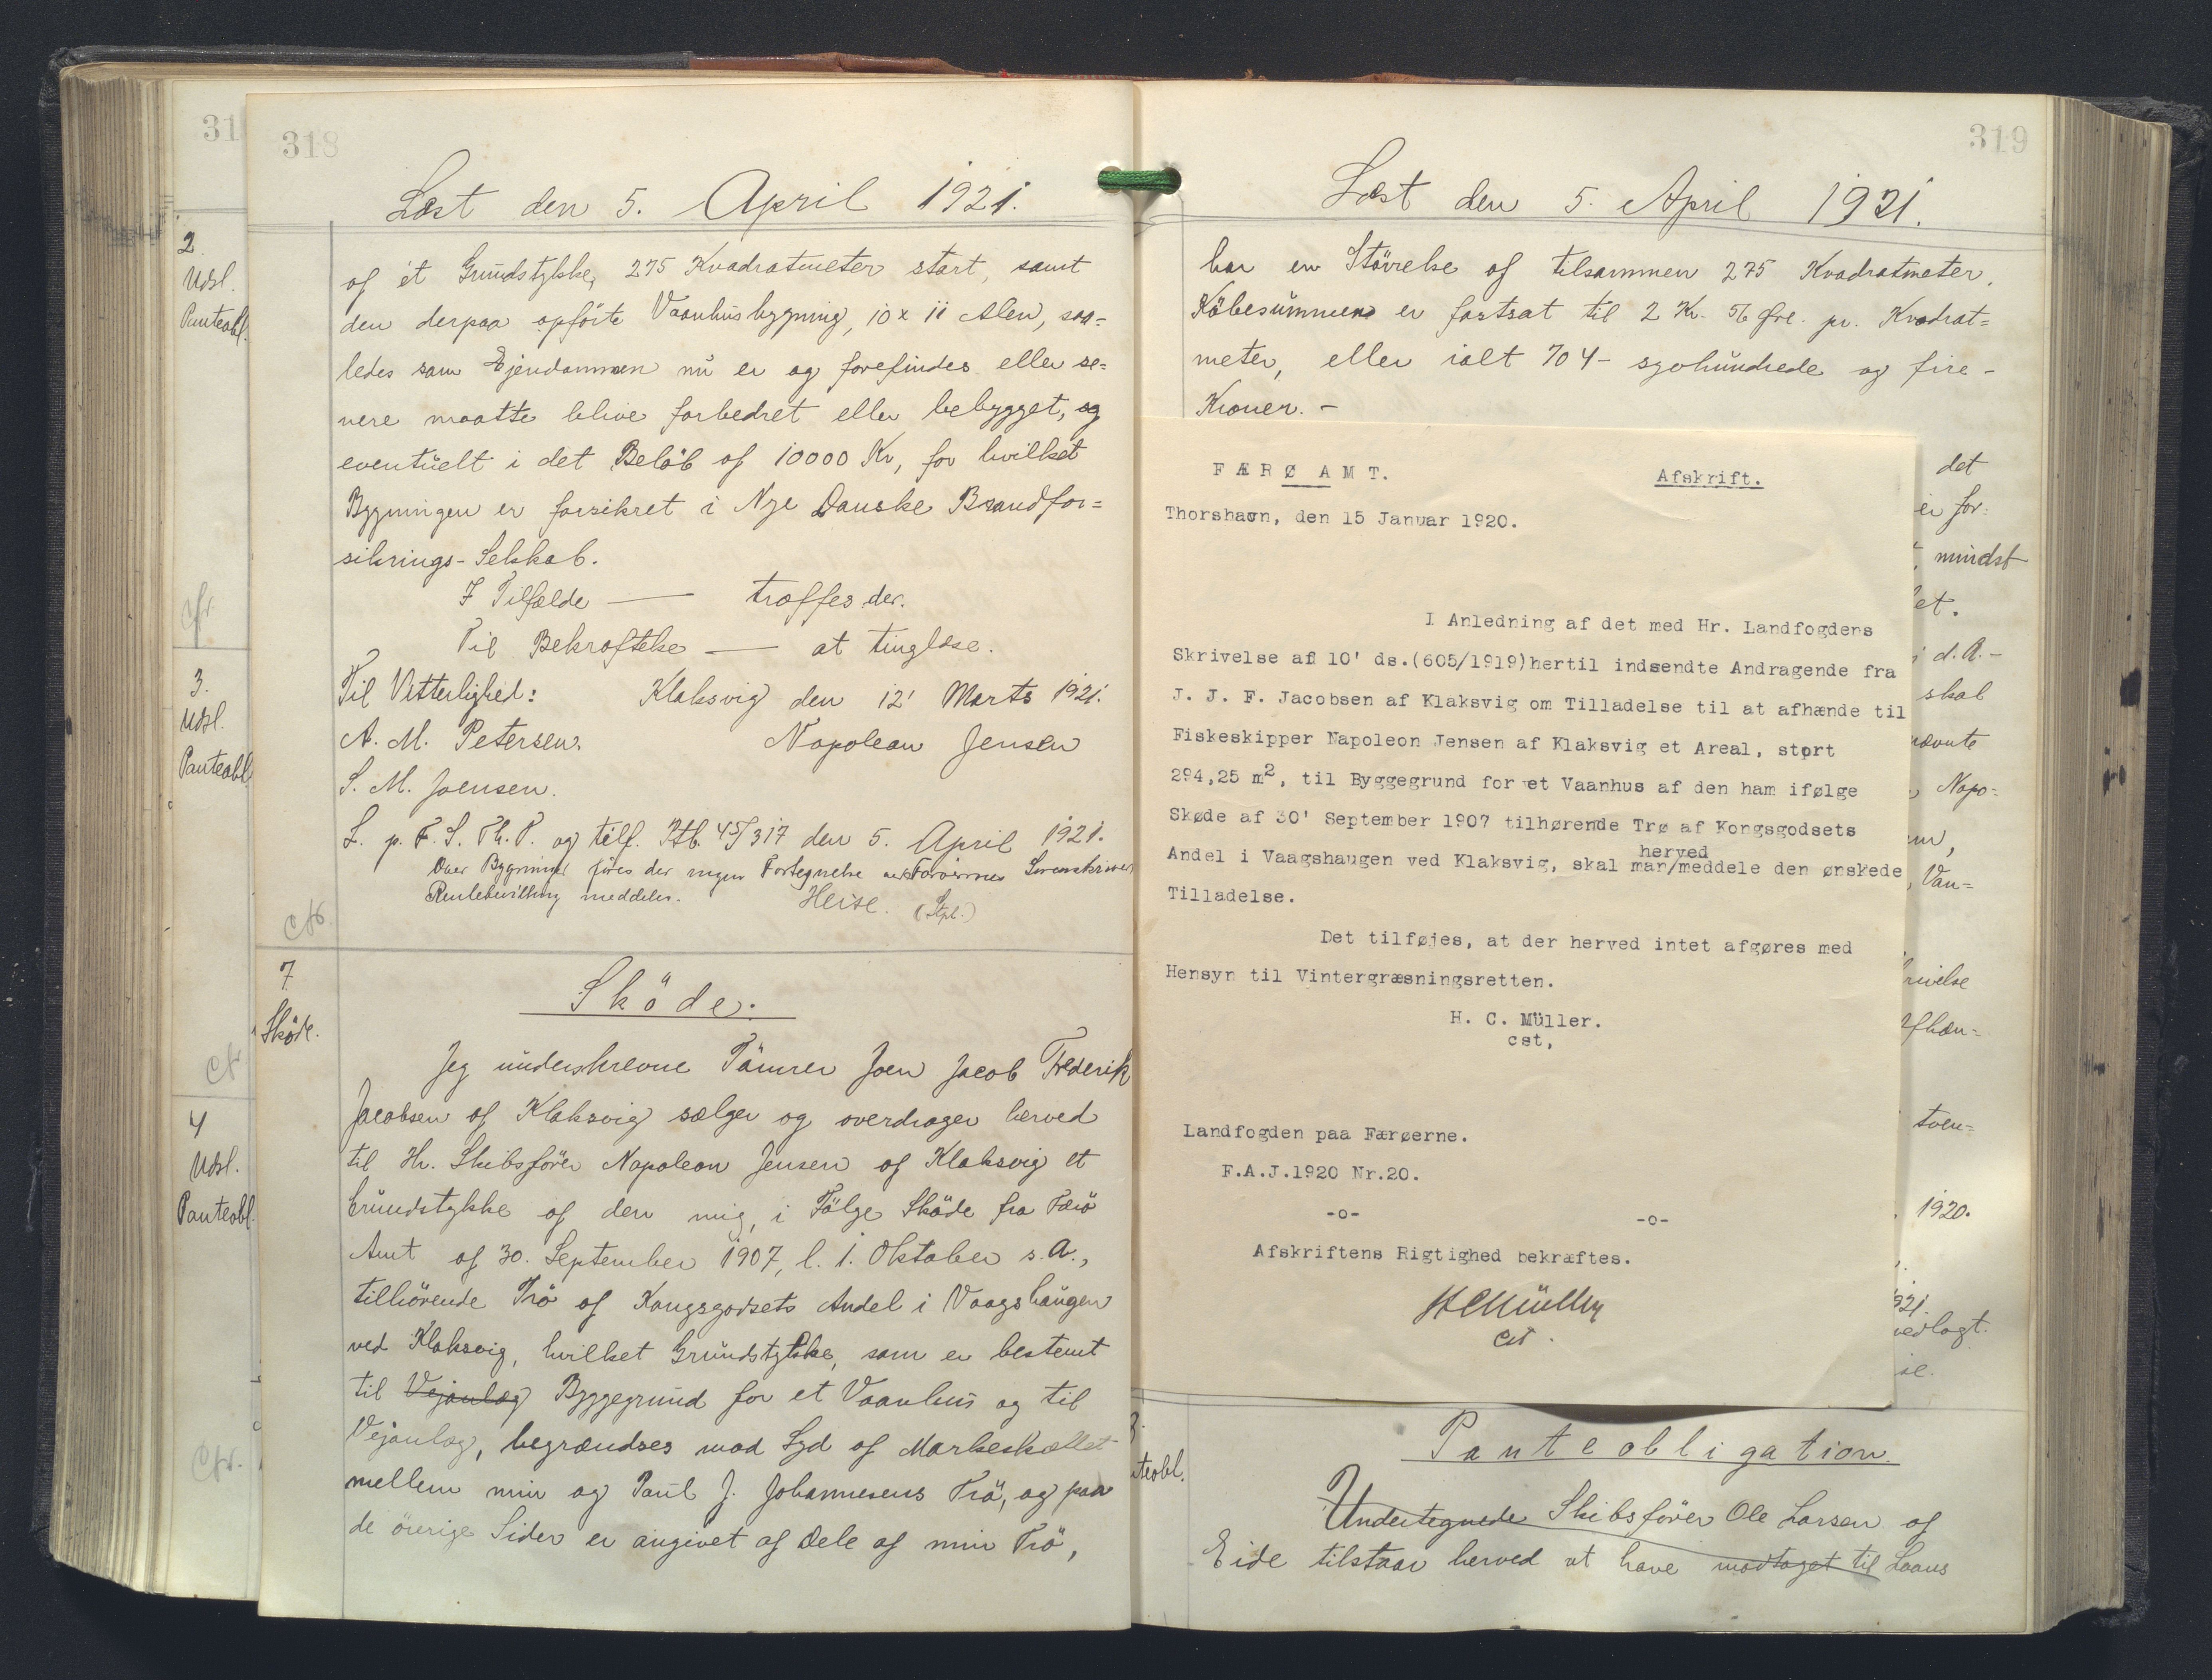 31
2.
Udsl.
Panteobl.
Cfr.
3.
Udsl.
Panteobl.
Cfr.
4
Udsl.
Panteobl.
Cfr.
318
Læst den 5. April 1921.
af ét Grundstykke, 275 Kvadratmeter stort, samt
den derpaa opförte Vaanhusbygning, 10 x 11 Alen, saa=
ledes som Ejendommen nu er og forefindes eller se=
nere maatte blive forbedret eller bebygget, og
eventuelt i det Belöb af 10000 Kr, for hvilket
Bygningen er forsikret i Nye Danske Brandfor=
sikrings-Selskab.
I Tilfælde — træffes der.
Til Bekræftelse — at tinglæse.
Til Vitterlighed: Klaksvig den 12' Marts 1921.
A. M. Petersen. Napoleon Jensen
S. M. Joensen.
L. p. F. S. Th. P. og tilf. Ptb. 45/317 den 5. April 1921.
Over Bygninger föres der ingen Fortegnelse ved Færøernes Sorenskriveri
meddeles. Heise. (Stpl.)
Cfr.
7.
Sköde.
Sköde.
Jeg underskrevne Tömrer Joen Jacob Frederik
Jacobsen af Klaksvig sælger og overdrager herved
til Hr. Skibsförer Napoleon Jensen af Klaksvig et
Grundstykke af den mig, i Fölge Sköde fra Færö
Amt af 30. September 1907, l. 1. Oktober s. A.,
tilhörende Trö af Kongsgodsets Andel i Vaagshaugen
ved Klaksvig, hvilket Grundstykke, som er bestemt
til Vejanlæg Byggegrund for et Vaanhus og til
Vejanlæg, begrændses mod Syd af Markeskællet
mellem min og Poul J. Johannesens Trö, og paa
de övrige Sider er angivet af Dele af min Trö,
319
Læst den 5. April 1921.
har en Störrelse af tilsammen 275 Kvadratmeter.
Köbesummen er fastsat til 2 Kr. 56 Øre pr. Kvadrat=
meter, eller ialt 704 - syvhundrede og fire -
Kroner. -
FÆRØ AMT. Afskrift.
Thorshavn, den 15 Januar 1920.
I Anledning af det med Hr. Landfogdens
Skrivelse af 10' ds.(605/1919)hertil indsendte Andragende fra
J. J. F. Jacobsen af Klaksvig om Tilladelse til at afhænde til
Fiskeskipper Napoleon Jensen af Klaksvig et Areal, stort
294,25 m2, til Byggegrund for et Vaanhus af den ham ifølge
Skøde af 30' September 1907 tilhørende Trø af Kongsgodsets
herved
Andel i Vaagshaugen ved Klaksvig, skal man/meddele den ønskede
Tilladelse.
Det tilføjes, at der herved intet afgøres med
Hensyn til Vintergræsningsretten.
H. C. Müller.
cst,
Landfogden paa Færøerne.
F.A.J.1920 Nr.20.
-o- -o-
Afskriftens Rigtighed bekræftes.
HCMüller
cst.
det
er for=
mindst
et.
i d. A.-
skal
nævnte
Napo=
em,
Van=
rivelse
afhæn=
tven=
1920.
921.
vedlagt.
se.
8.
teobl.
Panteobligation.
Undertegnede Skibsförer Ole Larsen af
Eide tilstaar herved at have modtaget til Laans